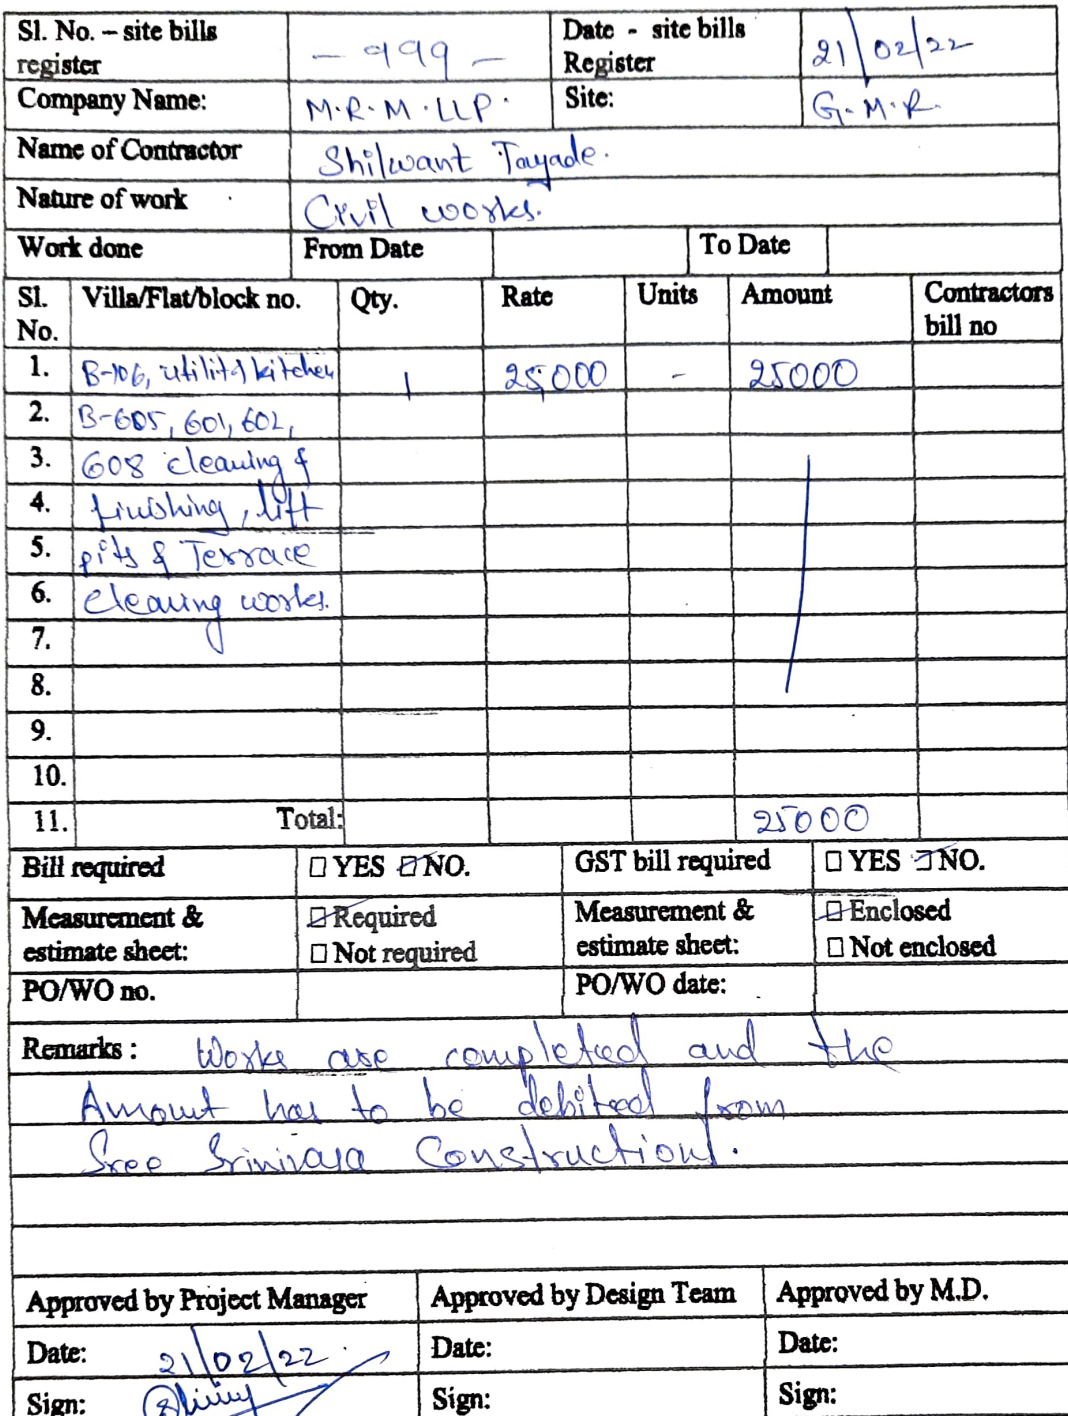 Sl. No. – site bills register - 999 - Date - site bills Register 21/02/22
Company Name: M.R.M.LLP. Site: G.M.R.
Name of Contractor Shilwant Tayade.
Nature of work Civil works.
Work done From Date To Date
Sl. No. Villa/Flat/block no. Qty. Rate Units Amount Contractors bill no
1. B-106, utility kitchen 1 25,000 - 25000
2. B-605, 601, 602,
3. 608 cleaning &
4. finishing, lift
5. pits & Terrace
6. cleaning works.
7.
8.
9.
10.
11. Total: 25000
Bill required □ YES □ NO. GST bill required □ YES □ NO.
Measurement & estimate sheet: □ Required □ Not required Measurement & estimate sheet: □ Enclosed □ Not enclosed
PO/WO no. PO/WO date:
Remarks : Works are completed and the
Amount has to be debited from
Sree Srinivasa Constructions.
Approved by Project Manager Approved by Design Team Approved by M.D.
Date: 21/02/22. Date: Date:
Sign: Sign: Sign: